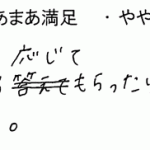 あまあ満足 ・やや
応じて
答えてもらったい
。